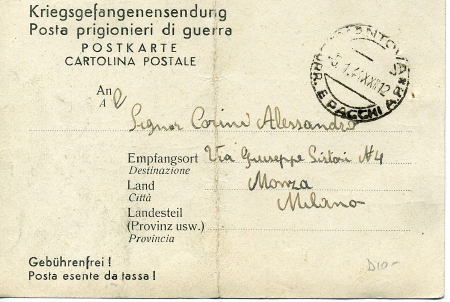 Kriegsgefangenensendung
Posta prigionieri di guerra
POSTKARTE
CARTOLINA POSTALE
MANTOVA
CORR. E PACCHI A.P.
An
A
Signor Corini Alessandro
Empfangsort Via Giuseppe Sirtori N4
Destinazione
Land Monza
Città
Landesteil Milano
(Provinz usw.)
Provincia
Gebührenfrei!
Posta esente da tassa!
D10-